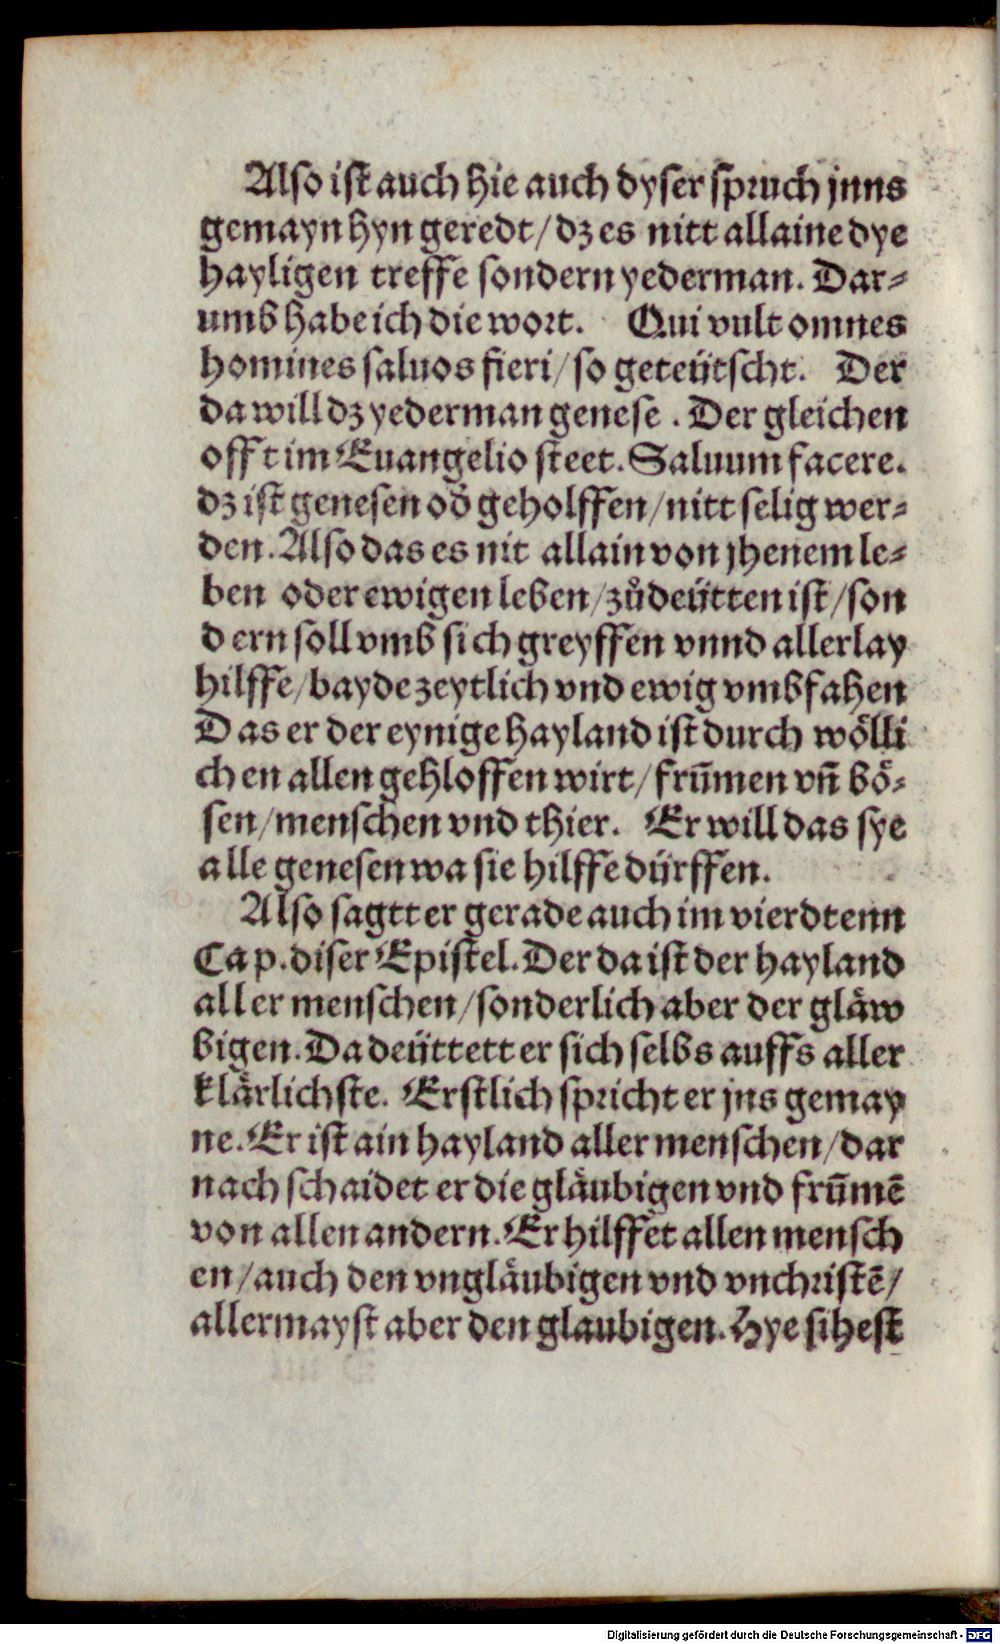 Also ist auch hie auch dyser spruch jnns
gemayn hyn geredt/ dz es nitt allaine dye
hayligen treffe sondern yederman. Dar-
umb habe ich die wort. Qui vult omnes
homines saluos fieri/ so geteütscht. Der
da will dz yederman genese. Der gleichen
offt im Euangelio steet. Saluum facere.
dz ist genesen od̕ geholffen/ nitt selig wer-
den. Also das es nit allain von jhenem le-
ben oder ewigen leben/ zůdeütten ist/ son
dern soll vmb sich greyffen vnnd allerlay
hilffe/ bayde zeytlich vnd ewig vmbfahen
Das er der eynige hayland ist durch wölli
chen allen gehloffen wirt/ frūmen vn̄ bö-
sen/ menschen vnd thier. Er will das sye
alle genesen wa sie hilffe dürffen.
Also sagtt er gerade auch im vierdtenn
Cap. diser Epistel. Der da ist der hayland
aller menschen/ sonderlich aber der gläw
bigen. Da deüttett er sich selbs auffs aller
klärlichste. Erstlich spricht er jns gemay
ne. Er ist ain hayland aller menschen/ dar
nach schaidet er die gläubigen vnd frūmē
von allen andern. Er hilffet allen mensch
en/ auch den vngläubigen vnd vnchristē/
allermayst aber den glaubigen. Hye sihest
Digitalisierung gefördert durch die Deutsche Forschungsgemeinschaft - DFG